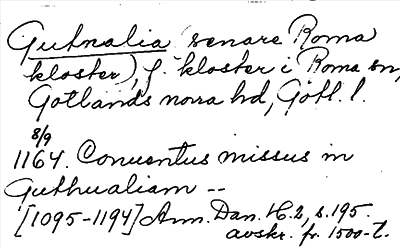 Gutnalia (senare Roma
kloster), f. kloster i Roma sn,
Gotlands norra hd, Gotl. l.
8/9
1164. Conventus missus in
Guthualiam --
[1095-1194] Ann. Dan. H. 2, s. 195.
avskr. fr. 1500-t.